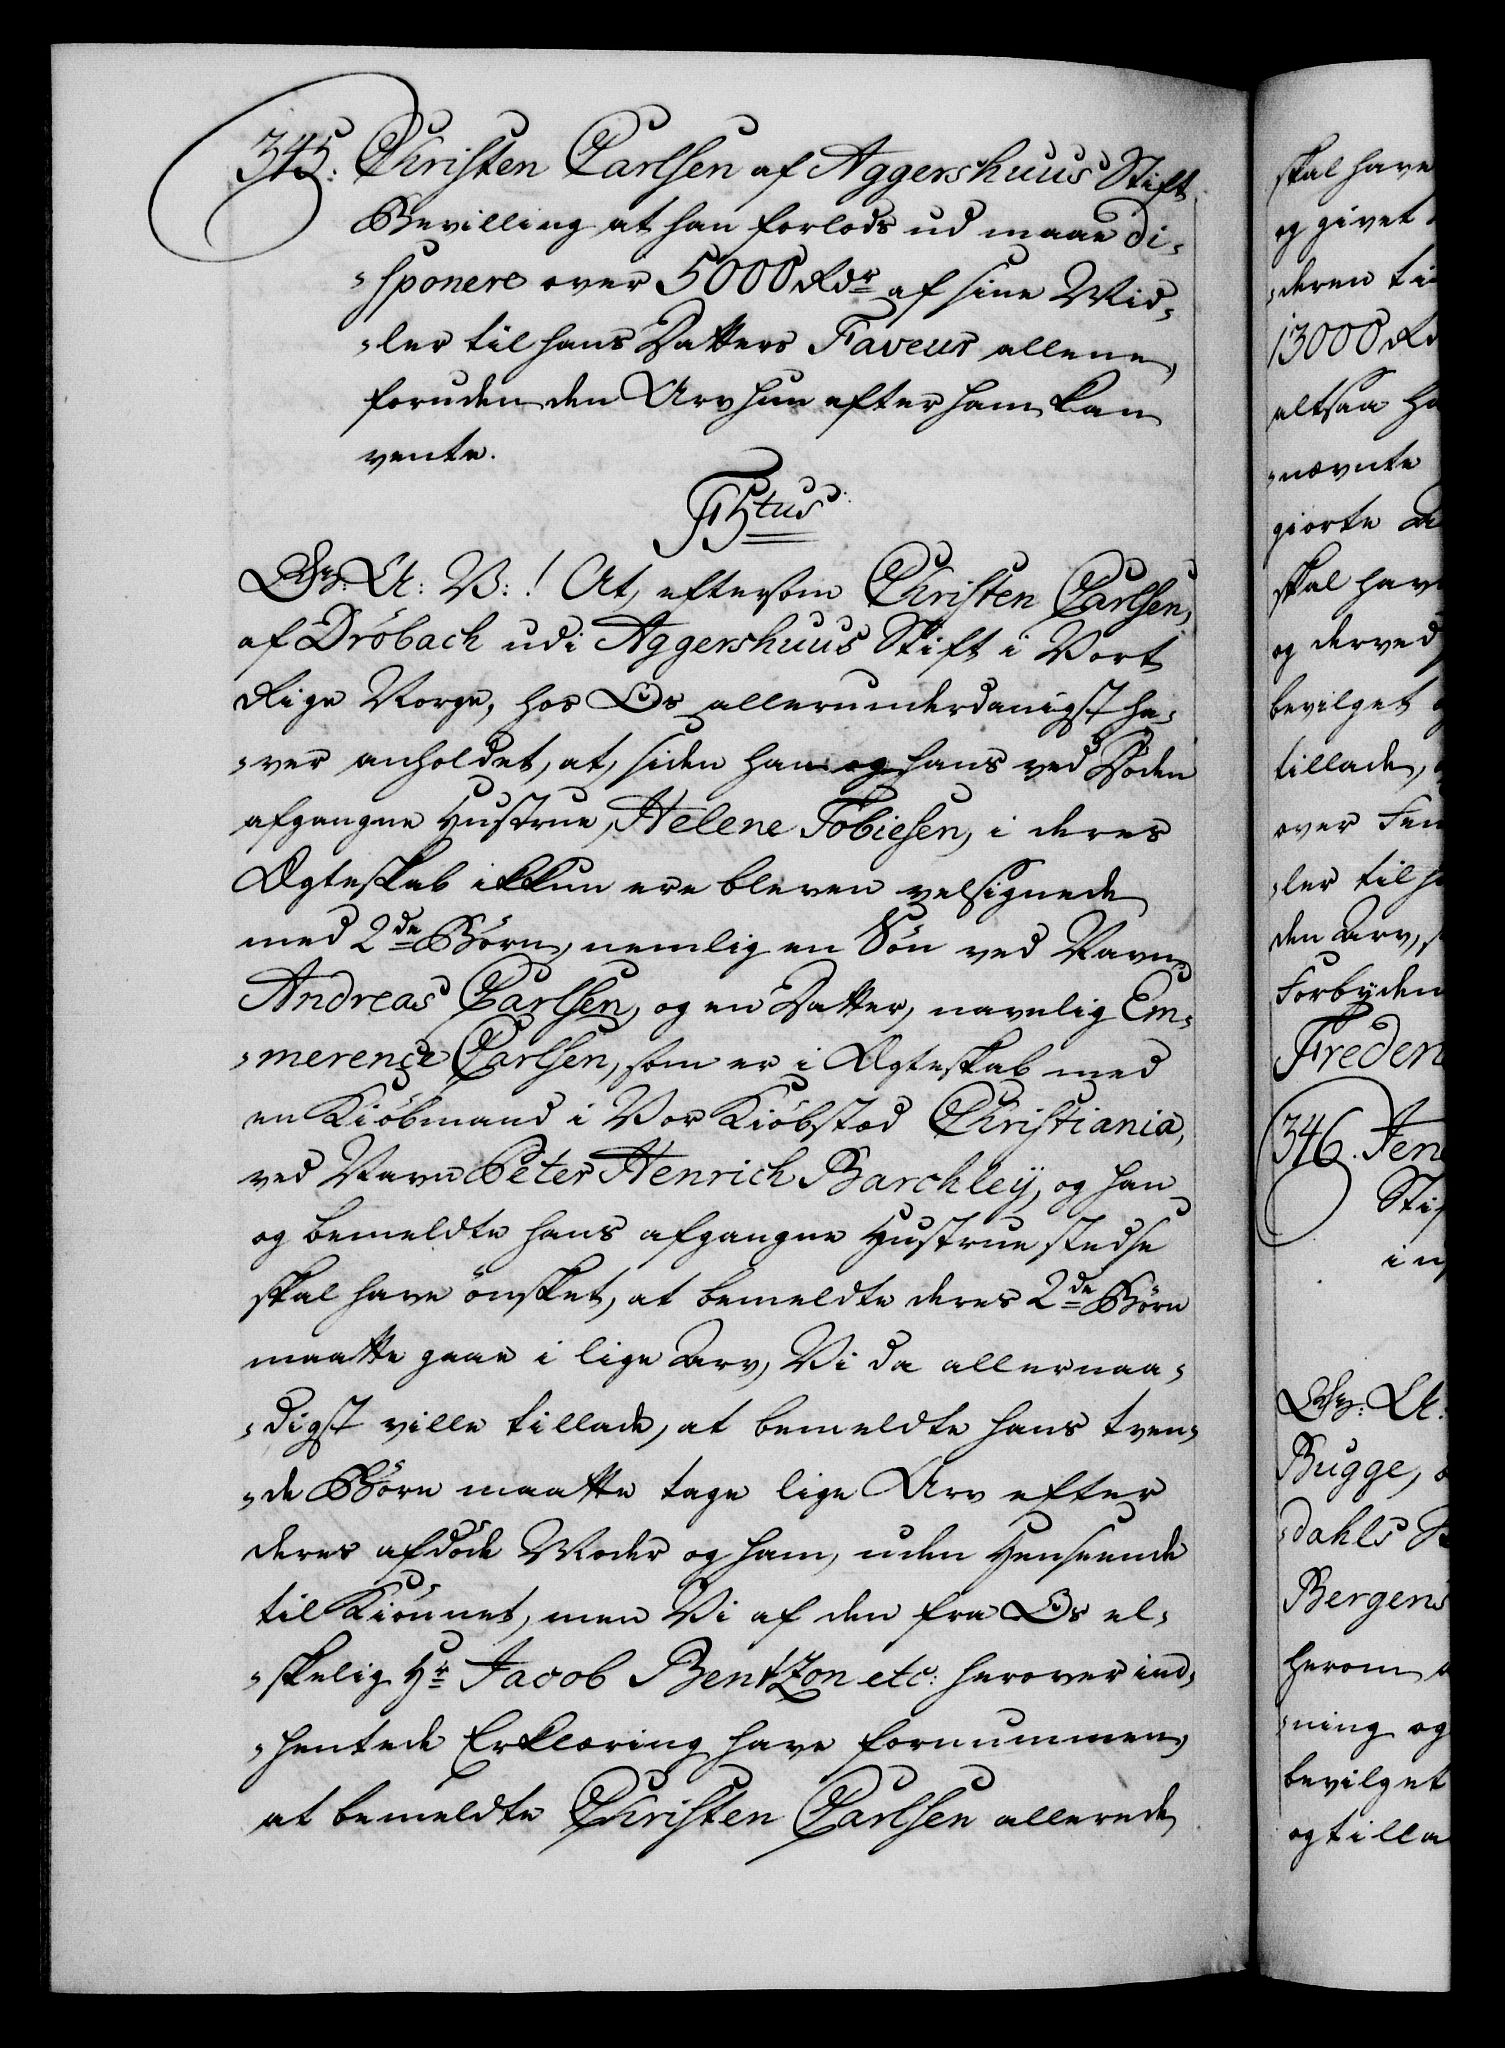 345. Christen Carlsen af Aggershuus Stift
Bevilling at han forlods ud maae di-
-sponere over 5000 Rdr af sine Mid-
-ler til hans Datters Faveur allene,
foruden den Arv hun efter ham kan
vente.
F5tus
Gr: A: V:! At, eftersom Christen Carlsen,
af Dröbach udi Aggershuus Stift i Vort
Rige Norge, hos Os allerunderdanigst ha-
-ver anholdet, at, siden han og hans ved Döden
afgangne Hustrue, Helene Tobiesen, i deres
Ægteskab ikkun ere bleven velsignede
med 2de Börn, nemlig en Sön ved Navn
Andreas Carlsen, og en Datter, navnlig Em-
-merence Carlsen, som er i Ægteskab med
en Kiöbmand i Vor Kiöbstæd Christiania,
ved Navn Peter Henrich Barchleÿ, og han
og bemeldte hans afgangne Hustrue stedse
skal have önsket, at bemeldte deres 2de Börn
maatte gaae i lige Arv, Vi da allernaa-
-digst ville tillade, at bemeldte hans tven-
-de Börn maatte tage lige Arv efter
deres afdöde Moder og ham, uden Henseende
til Kiönnet, men Vi af den fra Os el-
-skelig Hr Jacob Bentzon etc: herover ind-
-hentede Erklæring have fornummen,
at bemeldte Christen Carlsen allerede
skal have
og givet
-deren ti
13000 Rd
altsaa ha
-nævnte
giorte
skal hav
og derved
bevilget
tillade,
over Fem
-ler til h
den Arv,
Forbyden
Freden
346. Jen
Sti
i
Gr: A:
Bugge,
-dahls
Bergens
herom
-ning og
bevilget
og tilla